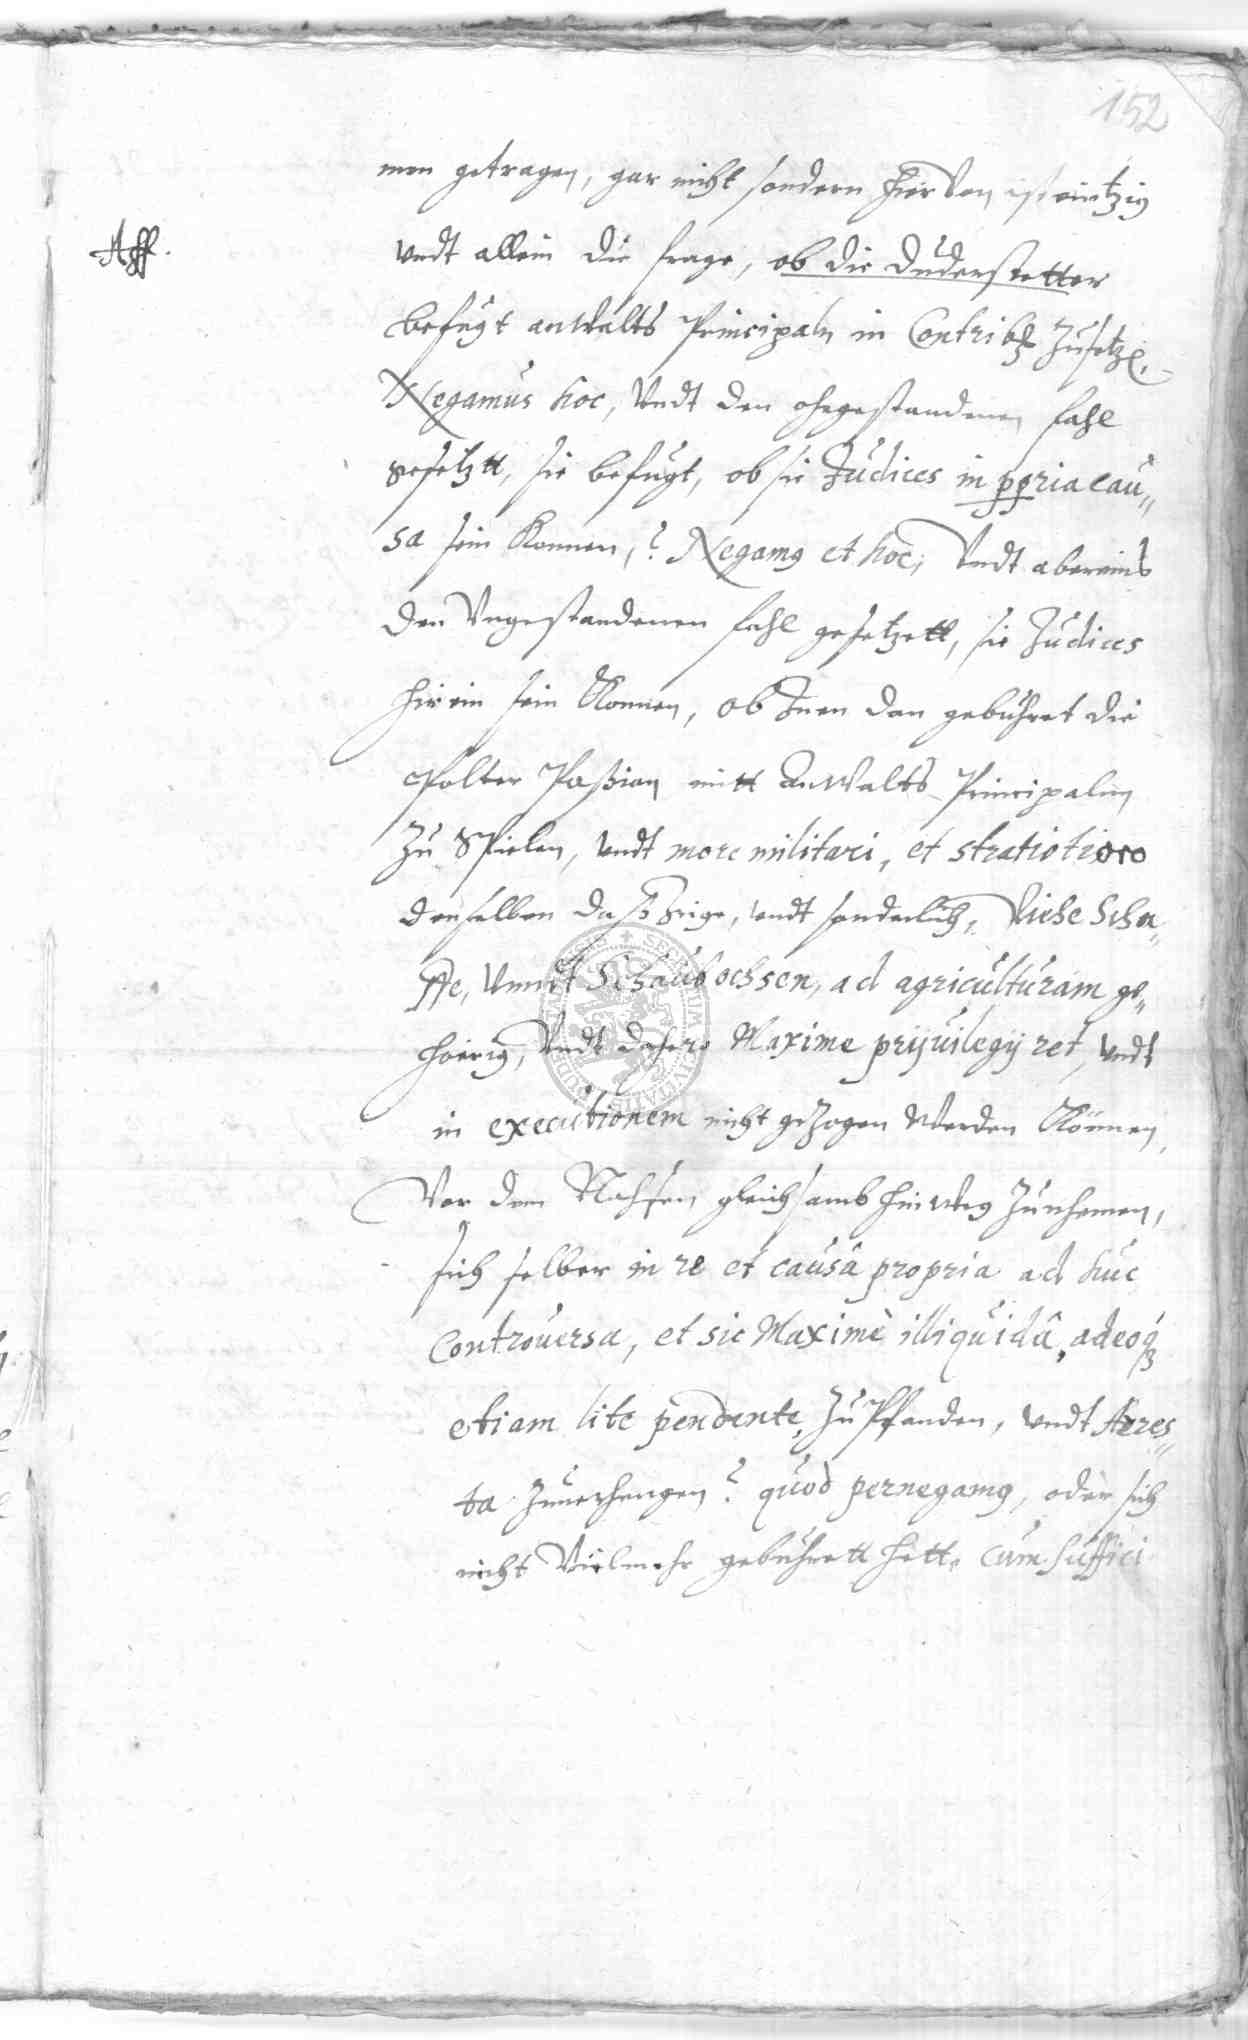 152
men getragen, gar nicht sondern hier Von ist eintzig
Aff.
Vndt allein die frage, ob die Duderstetter
befugt anwalts Principaln in Contribß Zusetz.
Negamus hoc, Vndt den ohngestandenen fahl
gesetztt, sie befugt, ob sie Judices in ppria cau„
sa sein Konnen,? Negamg et hoc, Vndt abereins
den Vngestandenen fahl gesetzett, sie Judices
hirein sein Konnen, ob Inen dan gebuhret die
Polter Paßion mitt Anwalts Principaln
Zu Spielen, Vndt more militari, et stratiotico
denselben daß Ihrige, Vndt sonderlich, Viehe Scha„
ffe, Vnndt Schaubochsen, ad agriculturam ge„
hoerig, Vndt dahero Maxime prijuilegij ret, Vndt
in executionem nicht gezogen Werden Können,
Vor dem Nachsen gleichsamb hinweg Zunhemen,
sich selber in re et causâ propria ad huc
Controuersa, et sic Maximè illiquidâ, adeoqȝ
etiam lite pendente, Zu Pfanden, Vndt Arres„
ta Zuuerhengen? quod pernegamg, oder sich
nicht Vielmehr gebuhrett hette cum suffici